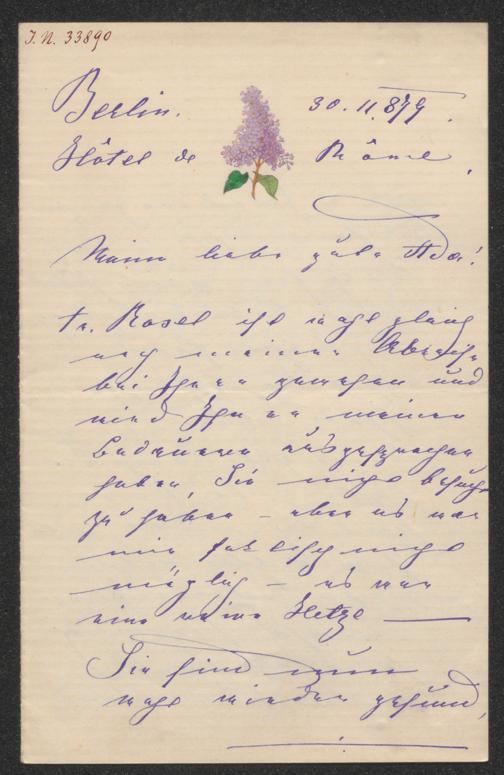 J. N. 33890
Berlin. 30. 11. 879.
Hôtel de Rôme.
Meine liebe gute Ada!
Fr. Rosel ist wohl gleich
nach meiner Abreise
bei Ihnen gewesen und
wird Ihnen meinen
Bedauern ausgesprochen
haben, Sie nicht besucht
zu haben – aber es war
mir faktisch nicht
möglich – es war
eine reine Hetze —
Sie sind nun
wohl wieder gesund,